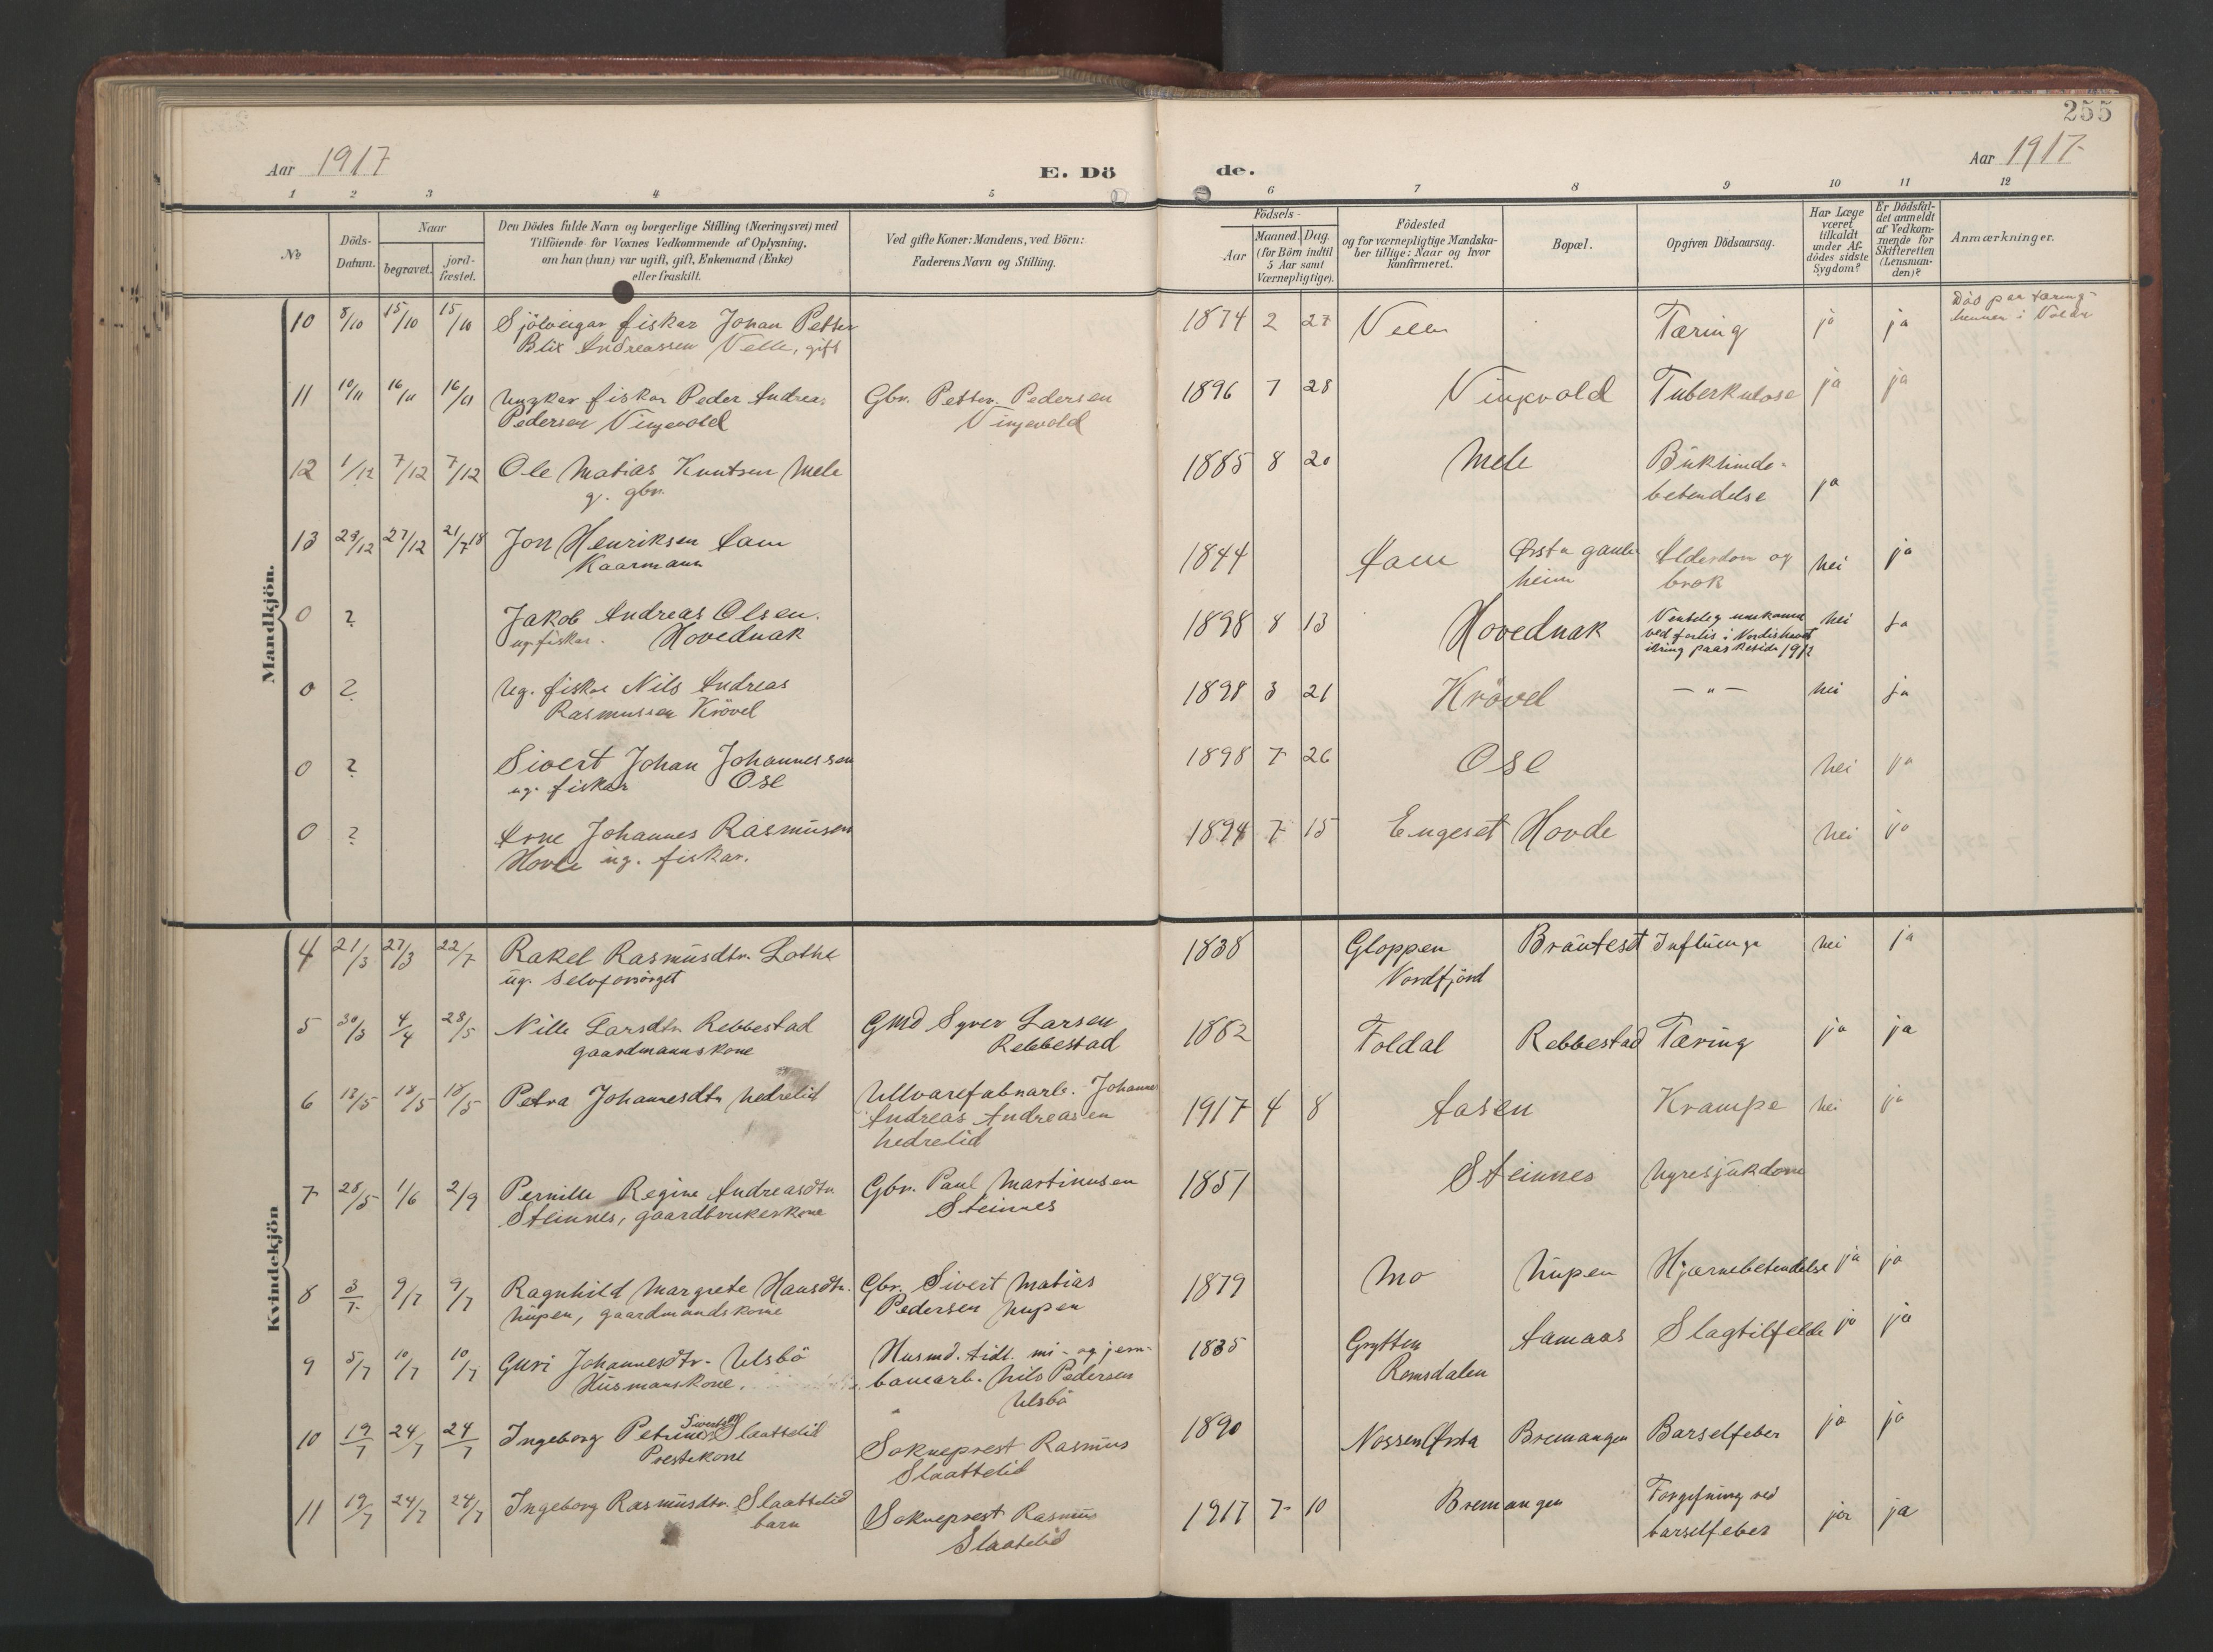 255
Aar 1917
E. Dö
de.
Aar 1917
1 2 3 4 5 6 7 8 9 10 11 12
No
Döds-
Datum.
Naar
begravet.
jord-
fæstet.
Den Dödes fulde Navn og borgerlige Stilling (Næringsvei) med
Tilföiende for Voxnes Vedkommende af Oplysning,
om han (hun) var ugift, gift, Enkemand (Enke)
eller fraskilt.
Ved gifte Koner: Mandens, ved Börn:
Faderens Navn og Stilling.
Födsels-
Aar
Maaned. Dag.
(for Börn indtil
5 Aar samt
Værnepligtige).
Födested
og for værnepligtige Mandska-
ber tillige: Naar og hvor
konfirmeret.
Bopæl.
Opgiven Dödsaarsag.
Har Læge
været
tilkaldt
under Af-
dödes sidste
Sygdom?
Er Dödsfal-
det anmeldt
af Vedkom-
mende for
Skifteretten
(Lensman-
den)?
Anmærkninger.
Mandkjön.
10 8/10 15/10 15/10 Sjölveigar fiskar Johan Petter
Blix Andreassen Velle, gift
1874 2 27 Velle Tæring ja ja
Död paa tæring-
i
11 10/11 16/11 16/11 Ungkar fiskar Peder Andreas
Pedersen Vingevold
Gbr. Petter Pedersen
Vingevold
1896 7 28 Vingevold Tuberkulose ja ja
12 1/12 7/12 7/12 Ole Matias Knutsen Mele
g. gbr.
1885 8 20 Mele Bukhinde-
betendelse ja
13 23/12 27/12 21/7 18 Jon Henriksen Aam
Kaarmann
1844 Aam Ørsta gamle
heim
Alderdom og
brok
nei ja
0 ? Jakob Andreas Olsen.
ug. fiskar. Hovednak
1898 8 13 Hovednak
ved forlis i Nordishavet
1917
nei ja
0 ? Ug. fiskar Nils Andreas
Rasmussen Krövel
1898 3 21 Krövel — " — nei ja
0 ? Sivert Johan Johannessen
ug. fiskar Ose
1898 7 26 Ose nei ja
0 ? Arne Johannes Rasmusen
Hovde ug. fiskar.
1894 7 15 Engeset Hovde nei ja
Kvindekjön
4 21/3 27/3 22/7 Rakel Rasmusdtr. Lothe
ug. selvforsörget
1838 Gloppen
Nordfjord
Brautest Influenza nei ja
5 30/3 4/4 28/5 Nille Larsdtr Rebbestad
gaardmannskone
Gmd Syver Larsen
Rebbestad
1862 Foldal Rebbestad Tæring ja ja
6 13/5 18/5 18/5 Petra Johannesdtr Nedrelid
Ullvarefabrarb. Johannes
Andreas Andreasen
Nedrelid
1917 4 8 Aasen Krampe nei ja
7 28/5 1/6 2/9 Pernille Regine Andreasdtr
Steinnes, gaardbrukerskone
Gbr. Paul Martinusen
Steinnes
1851 Steinnes Nyresjukdom
8 3/7 9/7 9/7 Ragnhild Margrete Hansdtr.
Nupen, gaardmandskone
Gbr. Sivert Matias
Pedersen Nupen
1879 Mo Nupen Hjernebetendelse ja ja
9 5/7 10/7 10/7 Guri Johannesdtr. Ulsbö
Husmanskone.
Husmd. tidl. mi- og jern-
banearb. Nils Pedersen
Ulsbö
1835 Grytten
Romsdalen
Aamaas Slagtilfelde ja ja
10 19/7 24/7 24/7 Ingeborg Petrine Slaattelid
Prestekone
Sokneprest Rasmus
Slaattelid
1890 Nossen Ørsta Bremangen Barselfeber ja ja
11 19/7 24/7 24/7 Ingeborg Rasmusdtr. Slaattelid
barn
Sokneprest Rasmus
Slaatelid
1917 7 10 Bremangen Forgifning ved
barselfeber
ja ja